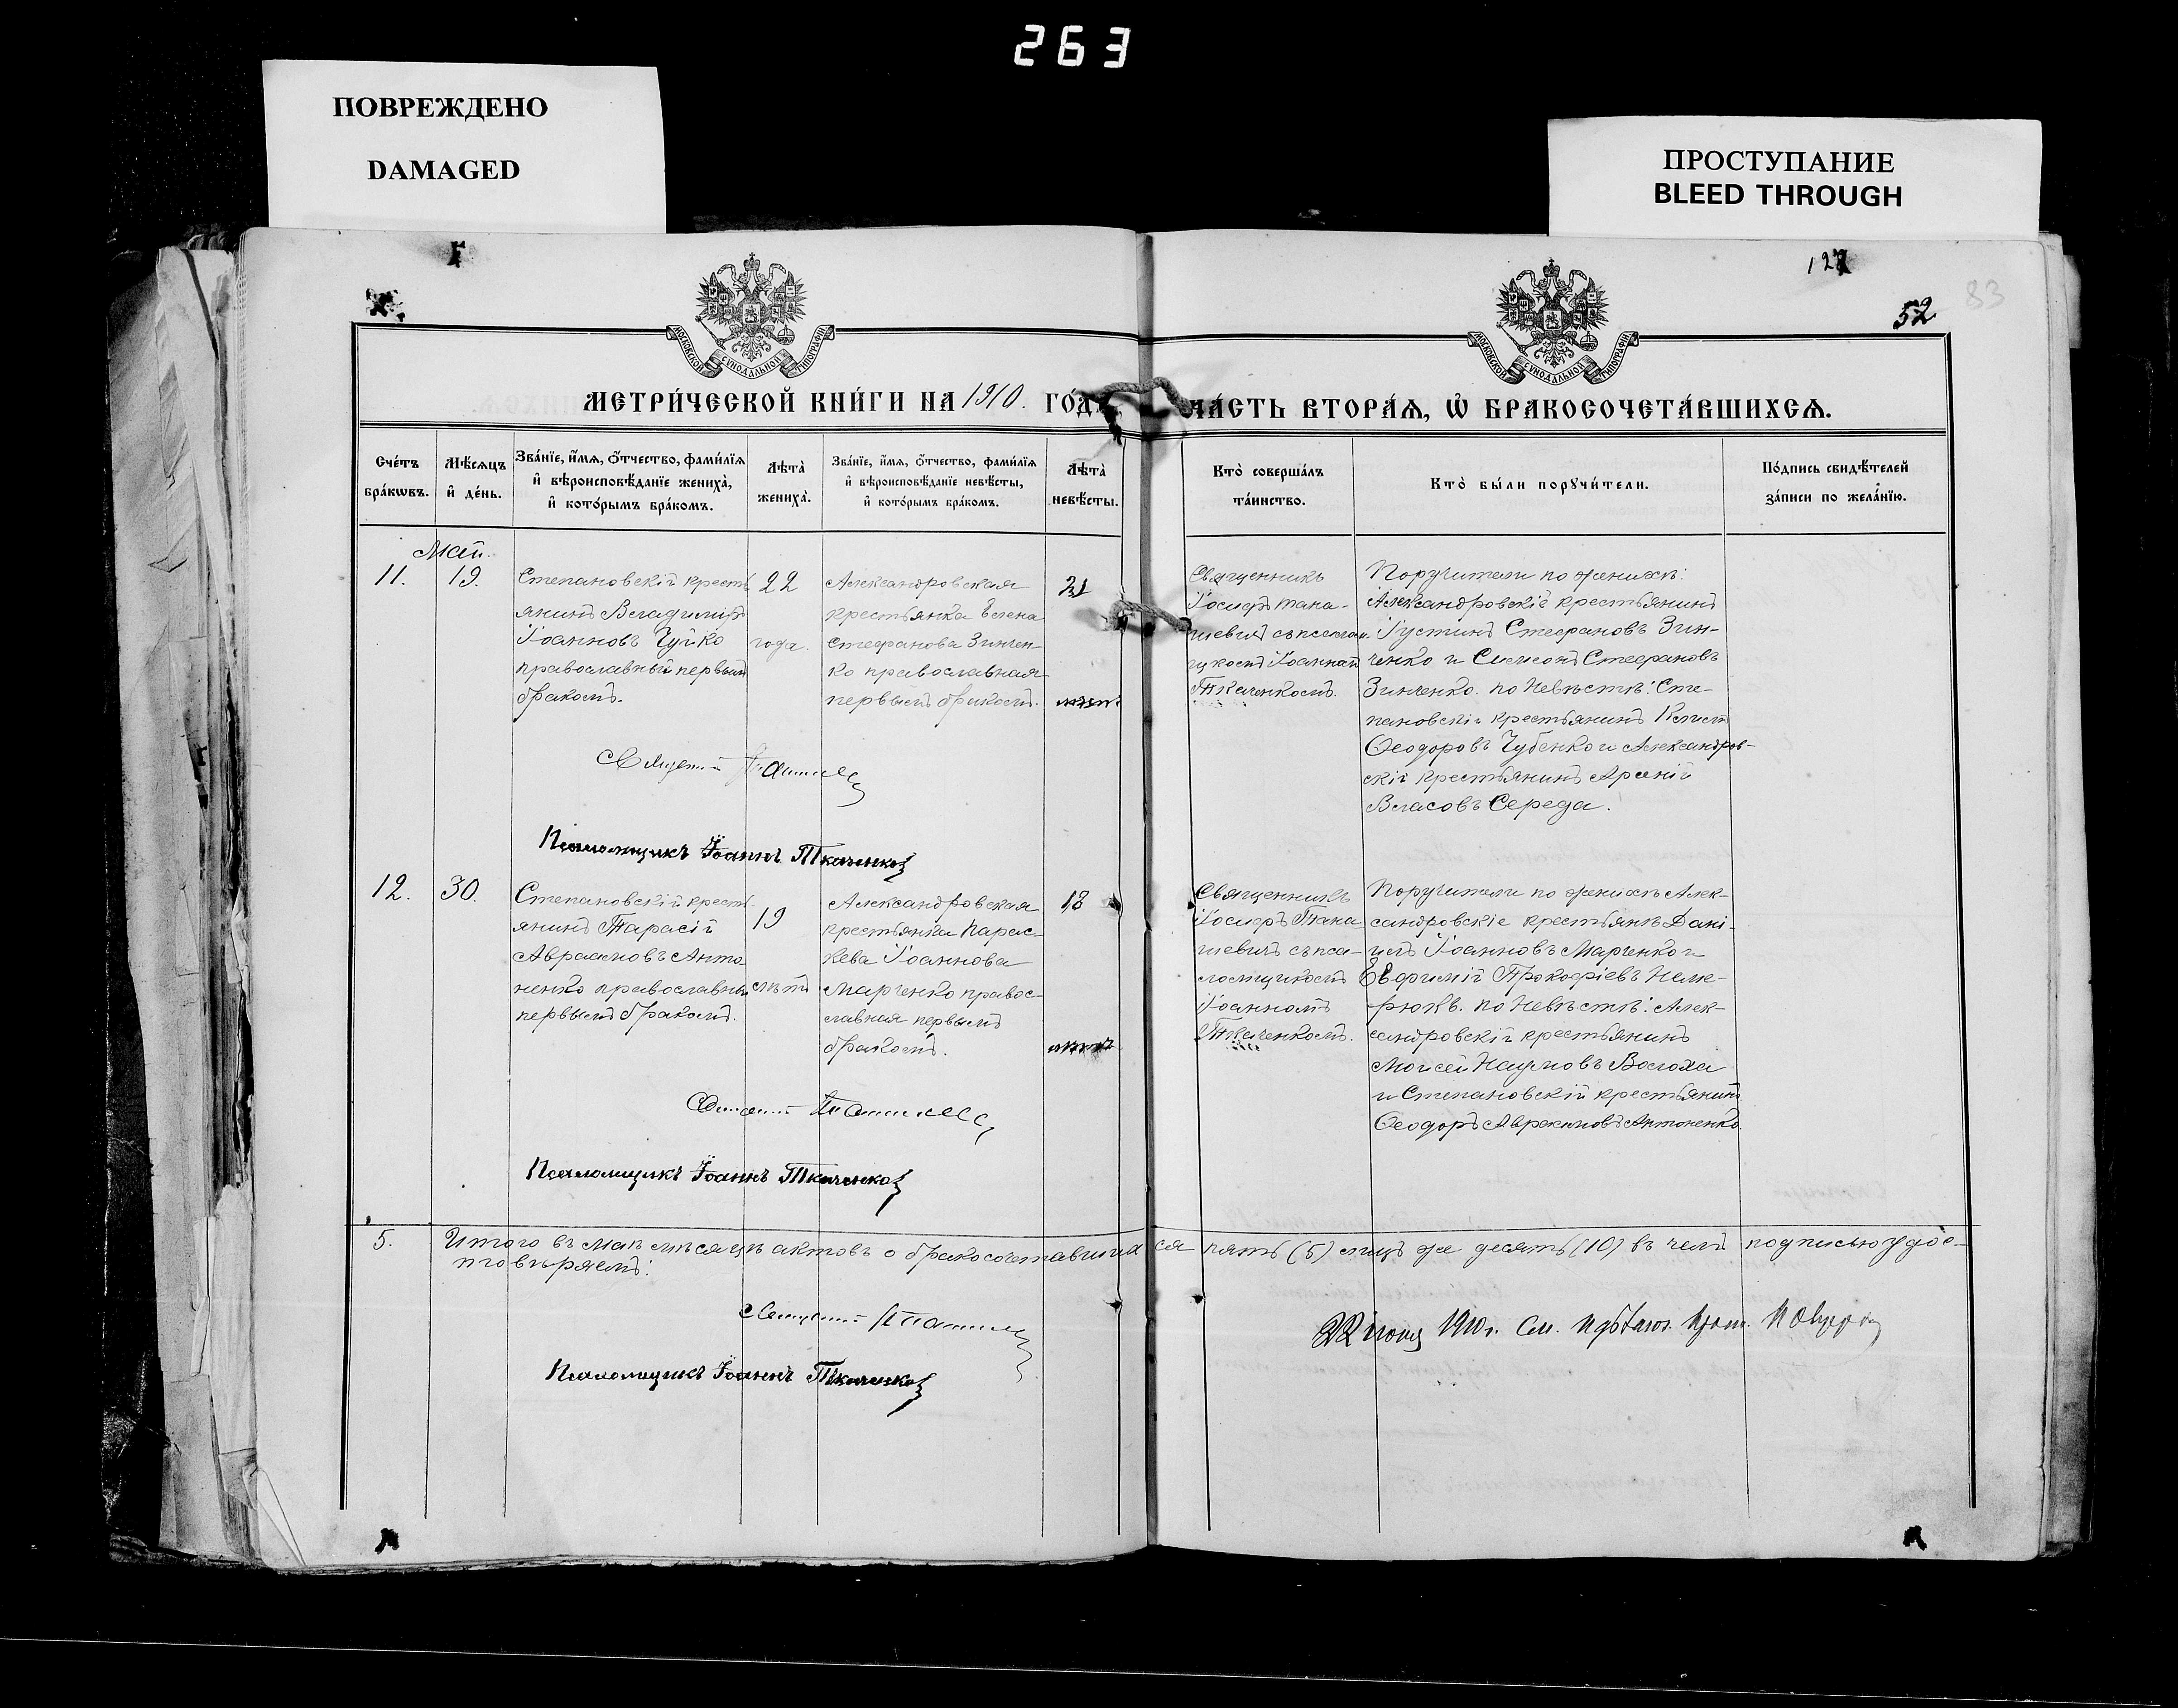 263
ПОВРЕЖДЕНО
DAMAGED
ПРОСТУПАНИЕ
BLEED THROUGH
127
52
83
МОСКОВСКОЙ СѴНОДАЛЬНОЙ ТИПОГРАФІИ
МОСКОВСКОЙ СѴНОДАЛЬНОЙ ТИПОГРАФІИ
МЕТРИ́ЧЕСКОЙ КНИ́ГИ НА 1910. ГО́ДЪ,
ЧА́СТЬ ВТОРА́Ѧ, Ѡ҆ БРАКОСОЧЕТА́ВШИХСѦ.
Сче́тъ бра́кѡвъ.
Мѣ́сѧцъ и҆ де́нь.
Зва́нїе, и҆́мѧ, ѻ҆́тчество, фами́лїѧ и҆ вѣроисповѣ́данїе жениха̀, и҆ кото́рымъ бра́комъ.
Лѣта̀ жениха̀.
Зва́нїе, и҆́мѧ, ѻ҆́тчество, фами́лїѧ и҆ вѣроисповѣ́данїе невѣ́сты, и҆ кото́рымъ бра́комъ.
Лѣта̀ невѣ́сты.
Кто̀ соверша́лъ та́инство.
Кто̀ бы́ли порꙋчи́тели.
По́дпись свидѣ́телей за́писи по жела́нїю.
Май.
11.
19.
Степановскій кресть
янинъ Владиміръ
Іоанновъ Чуйко
православный первым
бракомъ.
22
года.
Александровская
крестьянка Елена
Стефанова Зинчен-
ко православная
первымъ бракомъ.
21
лѣтъ
Священникъ
Іосифъ Тана-
шевичъ съ псалом-
щикомъ Іоанном
Ткаченкомъ.
Поручители по женихѣ:
Александровскіе крестьянинъ
Іустинъ Стефановъ Зин-
ченко и Симеонъ Стефановъ
Зинченко. по Невѣстѣ: Сте-
пановскій крестьянинъ Климъ
Ѳеодоровъ Чубенко и Александров-
скій крестьянинъ Арсеній
Власовъ Середа.
Псаломщикъ Іоаннъ Ткаченко
12.
30.
Степановскій кресть
янинъ Тарасій
Авраамовъ Анто
ненко православны
первымъ бракомъ.
19
лѣтъ
Александровская
крестьянка Парас-
кева Іоаннова
Марченко правос-
лавная первымъ
бракомъ.
18
лѣтъ
Священникъ
Іосифъ Тана
шевичъ съ пса-
ломщикомъ
Іоанномъ
Ткаченкомъ.
Поручители по женихѣ Алек-
сандровскіе крестьянѣ Дані-
илъ Іоанновъ Марченко и
Евфимій Прокофіевъ Неме-
рюкъ. по Невѣстѣ: Алек-
сандровскій крестьянинъ
Моисей Наумовъ Волоха
и Степановскій крестьянинъ
Ѳеодоръ Авраамовъ Антоненко.
Псаломщикъ Іоаннъ Ткаченко
5.
Итого въ маѣ мѣсяцѣ актовъ о бракосочетавшихся пять (5) лицъ же десять (10) въ чемъ подписью удос-
товѣряемъ:
Псаломщикъ Іоаннъ Ткаченко
22 1910 г.